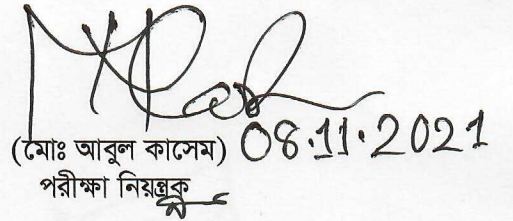 (মোঃ আবুল কাসেম) 08.11.2021
পরীক্ষা নিয়ন্ত্রক